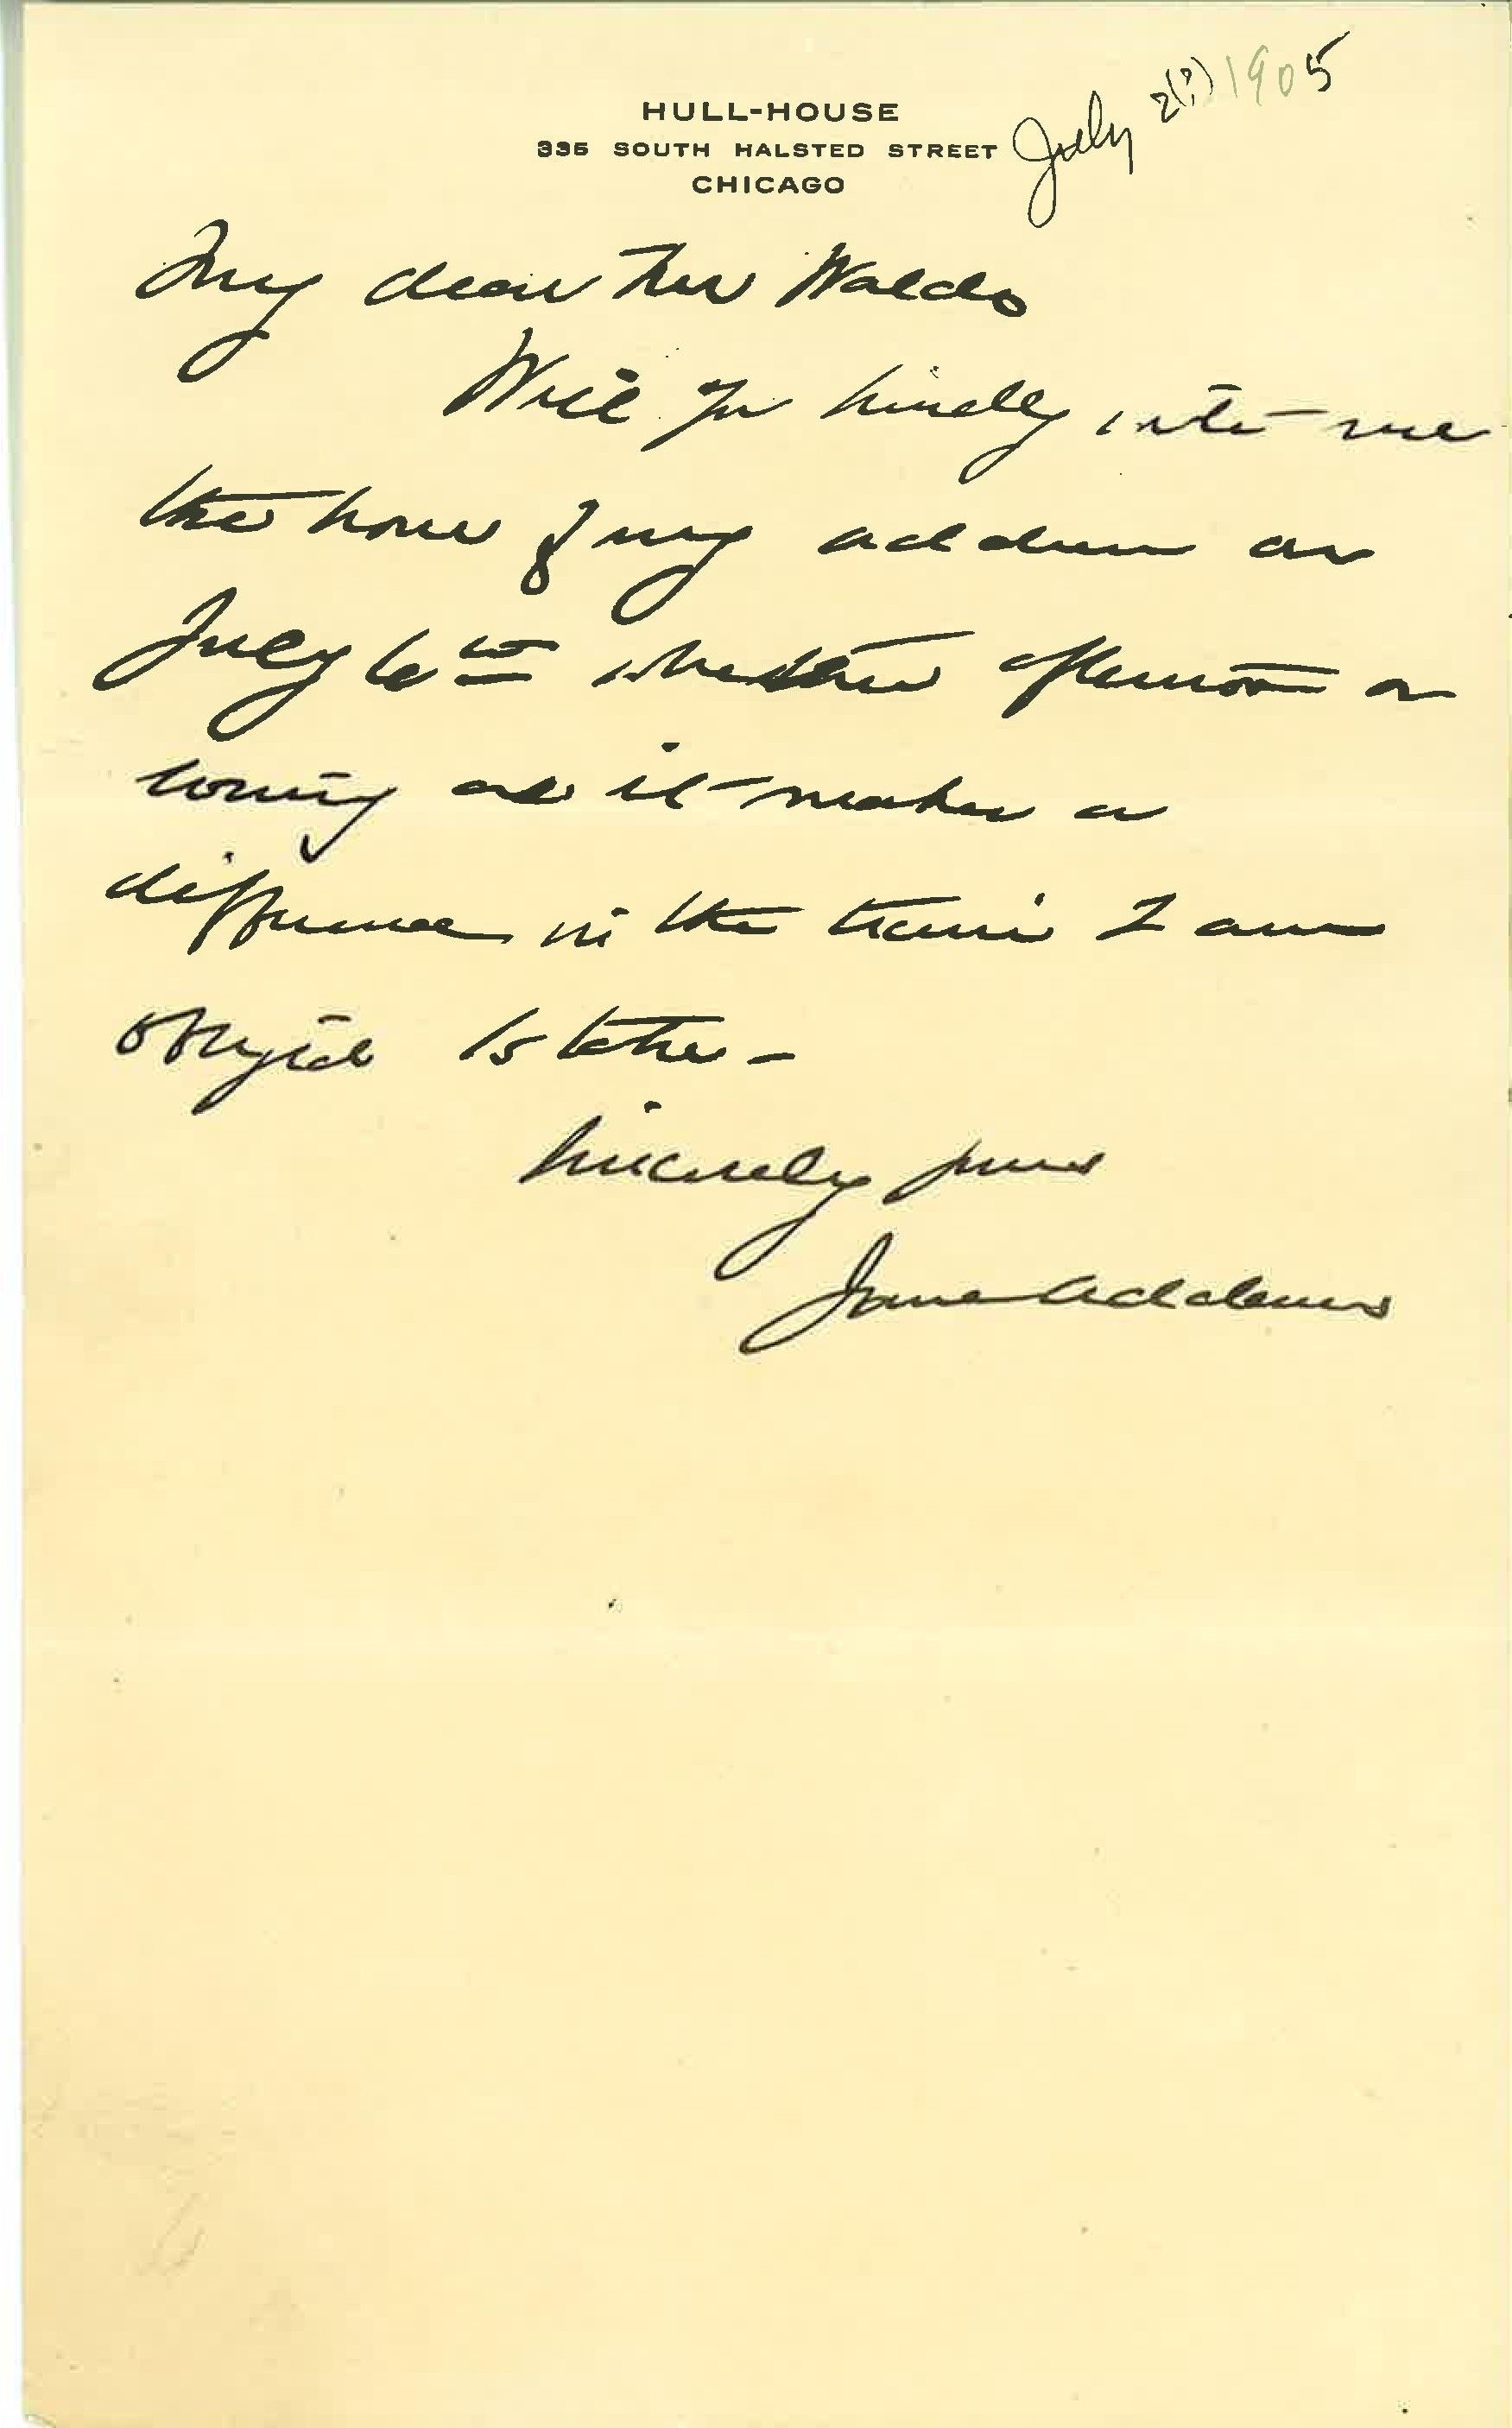 HULL-HOUSE
335 SOUTH HALSTED STREET
CHICAGO
July 2(?) 1905
My dear Mr Waldo
Will you kindly write me
the hour of my address on
July 6th whether afternoon or
evening as it makes a
difference in the train I am
obliged to take -
Sincerely yours
Jane Addams